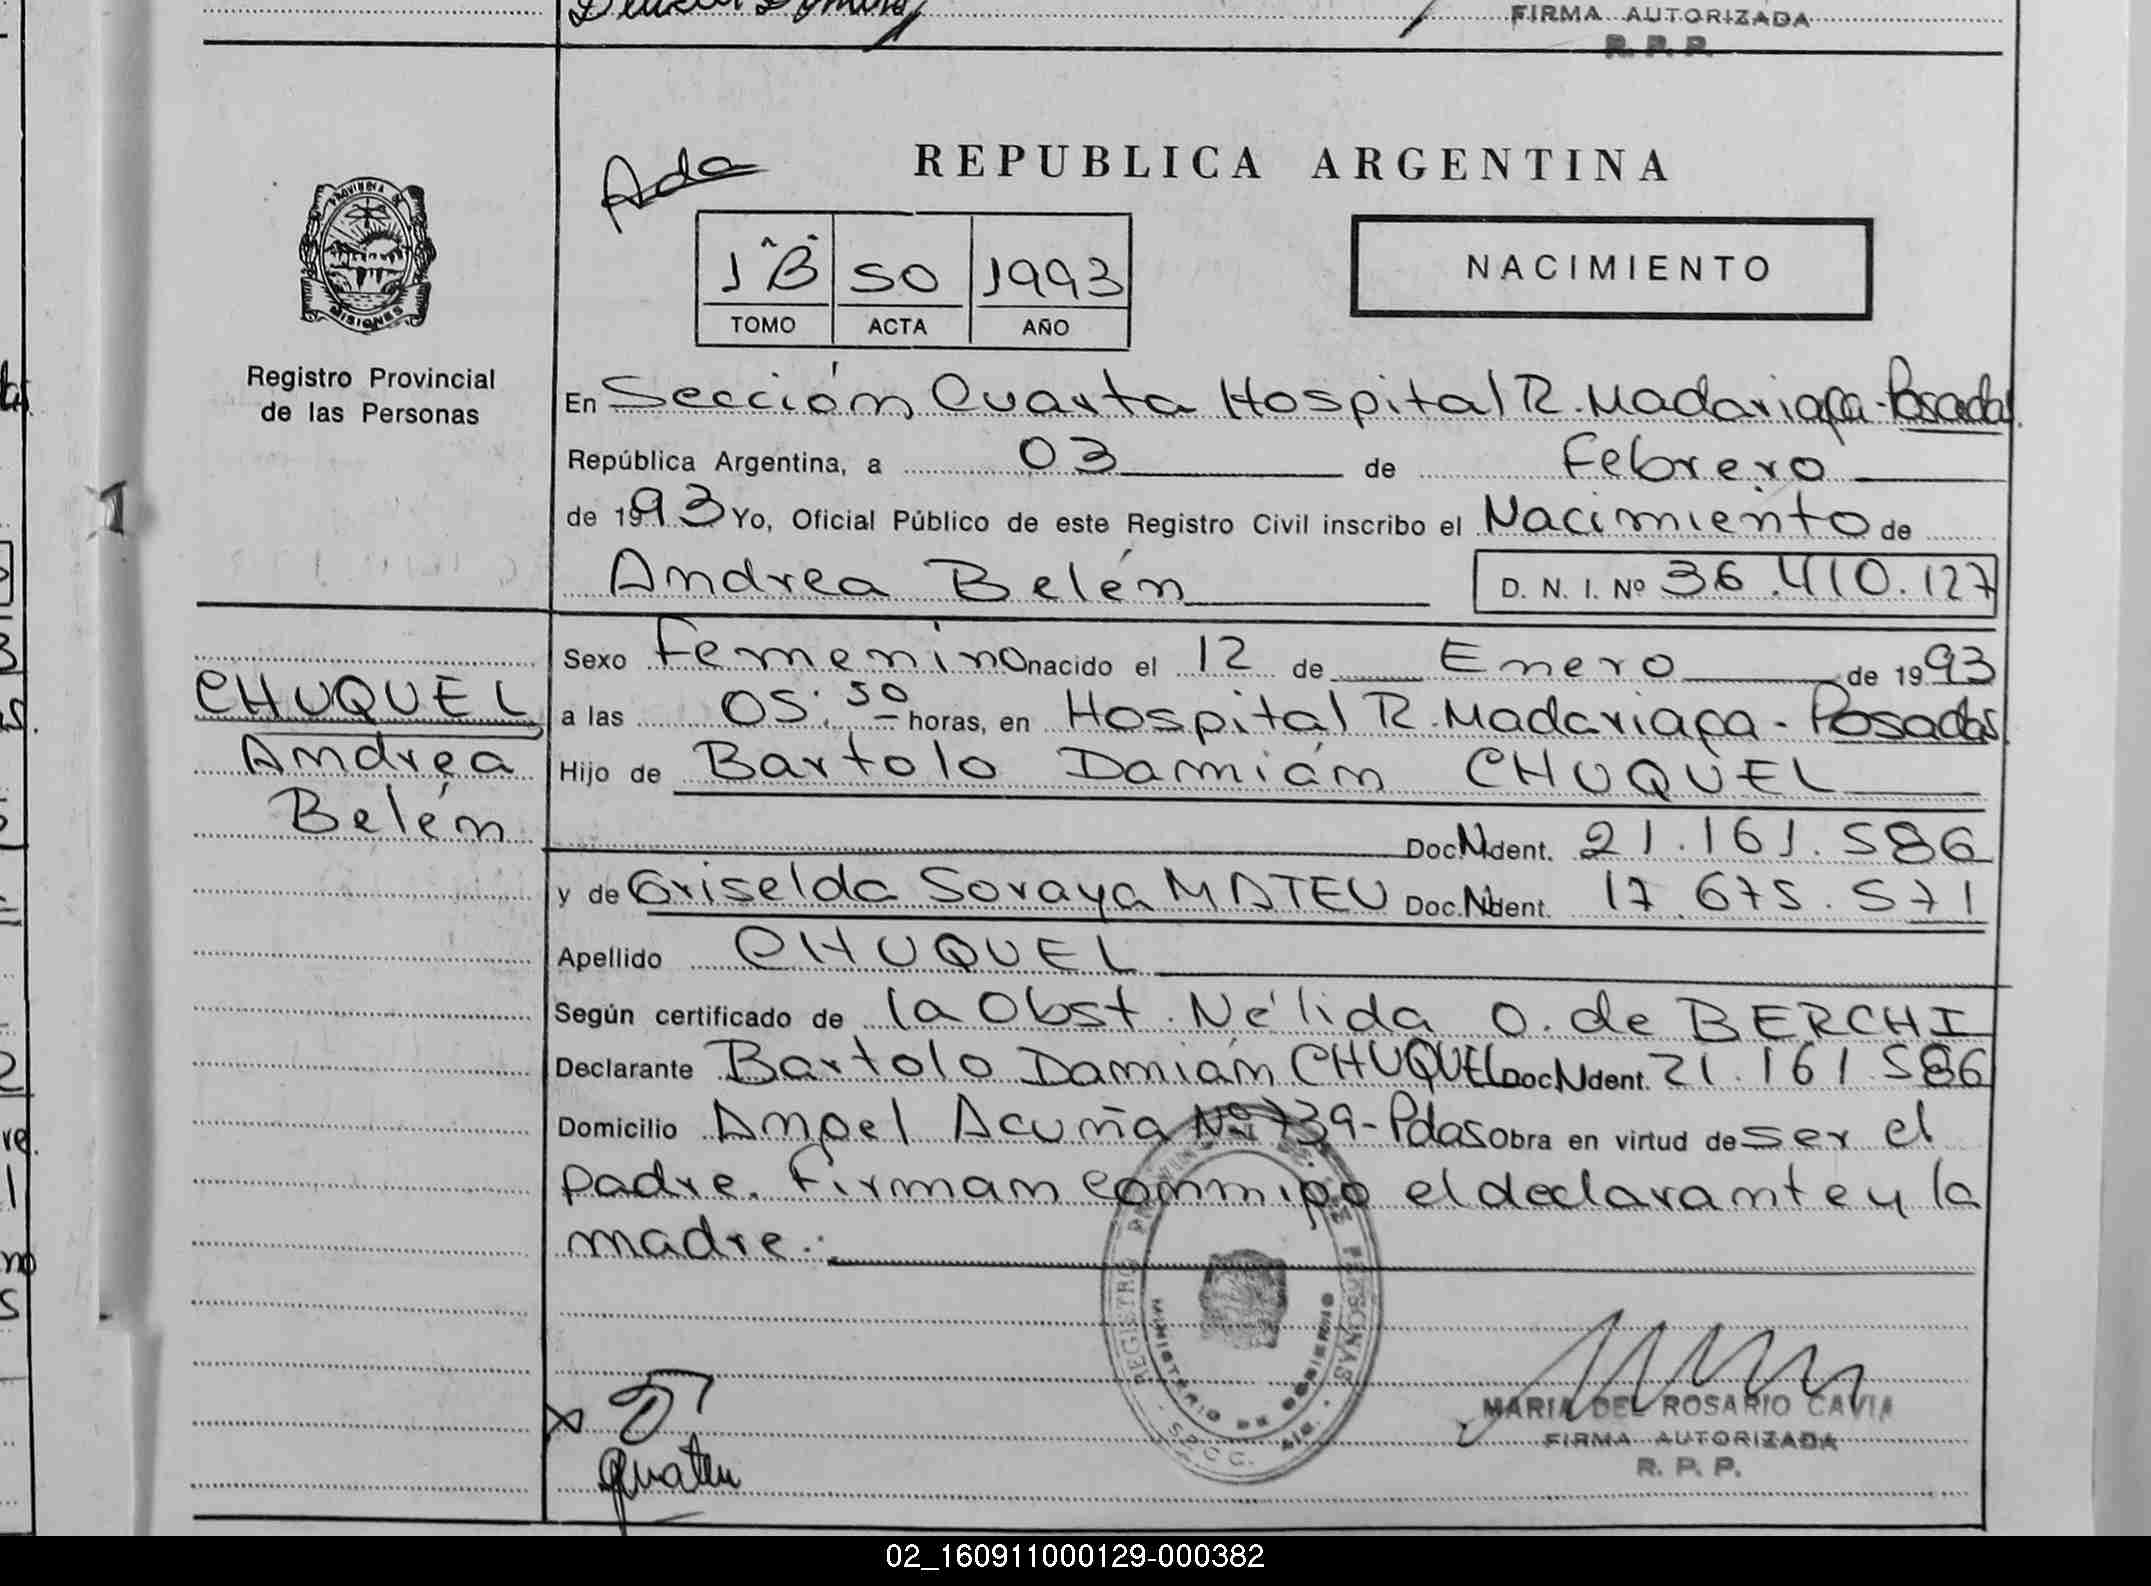 FIRMA AUTORIZADA
R. P. P.
Ada
REPUBLICA ARGENTINA
PROVINCIA DE
MISIONES
Registro Provincial
de las Personas
1ªB 50 1993
TOMO ACTA AÑO
NACIMIENTO
En Sección Cuarta Hospital R. Madariaga - Posadas
República Argentina, a 03 de Febrero
de 1993 Yo, Oficial Público de este Registro Civil inscribo el Nacimiento de
Andrea Belén D. N. I. Nº 36.410.127
CHUQUEL
Andrea
Belén
Sexo Femenino nacido el 12 de Enero de 1993
a las 05:50 horas, en Hospital R. Madariaga - Posadas
Hijo de Bartolo Damián CHUQUEL
Doc. N Ident. 21.161.586
y de Griselda Soraya MATEU Doc. N Ident. 17.675.571
Apellido CHUQUEL
Según certificado de la Obst. Nélida O. de BERCHI
Declarante Bartolo Damián CHUQUEL Doc N Ident. 21.161.586
Domicilio Angel Acuña Nº 739 - Pdas Obra en virtud de ser el
padre. Firman conmigo el declarante y la
madre.
REGISTRO PROVINCIAL DE LAS PERSONAS
MINISTERIO DE GOBIERNO
MARIA DEL ROSARIO CAVIA
FIRMA AUTORIZADA
R. P. P.
02_160911000129-000382